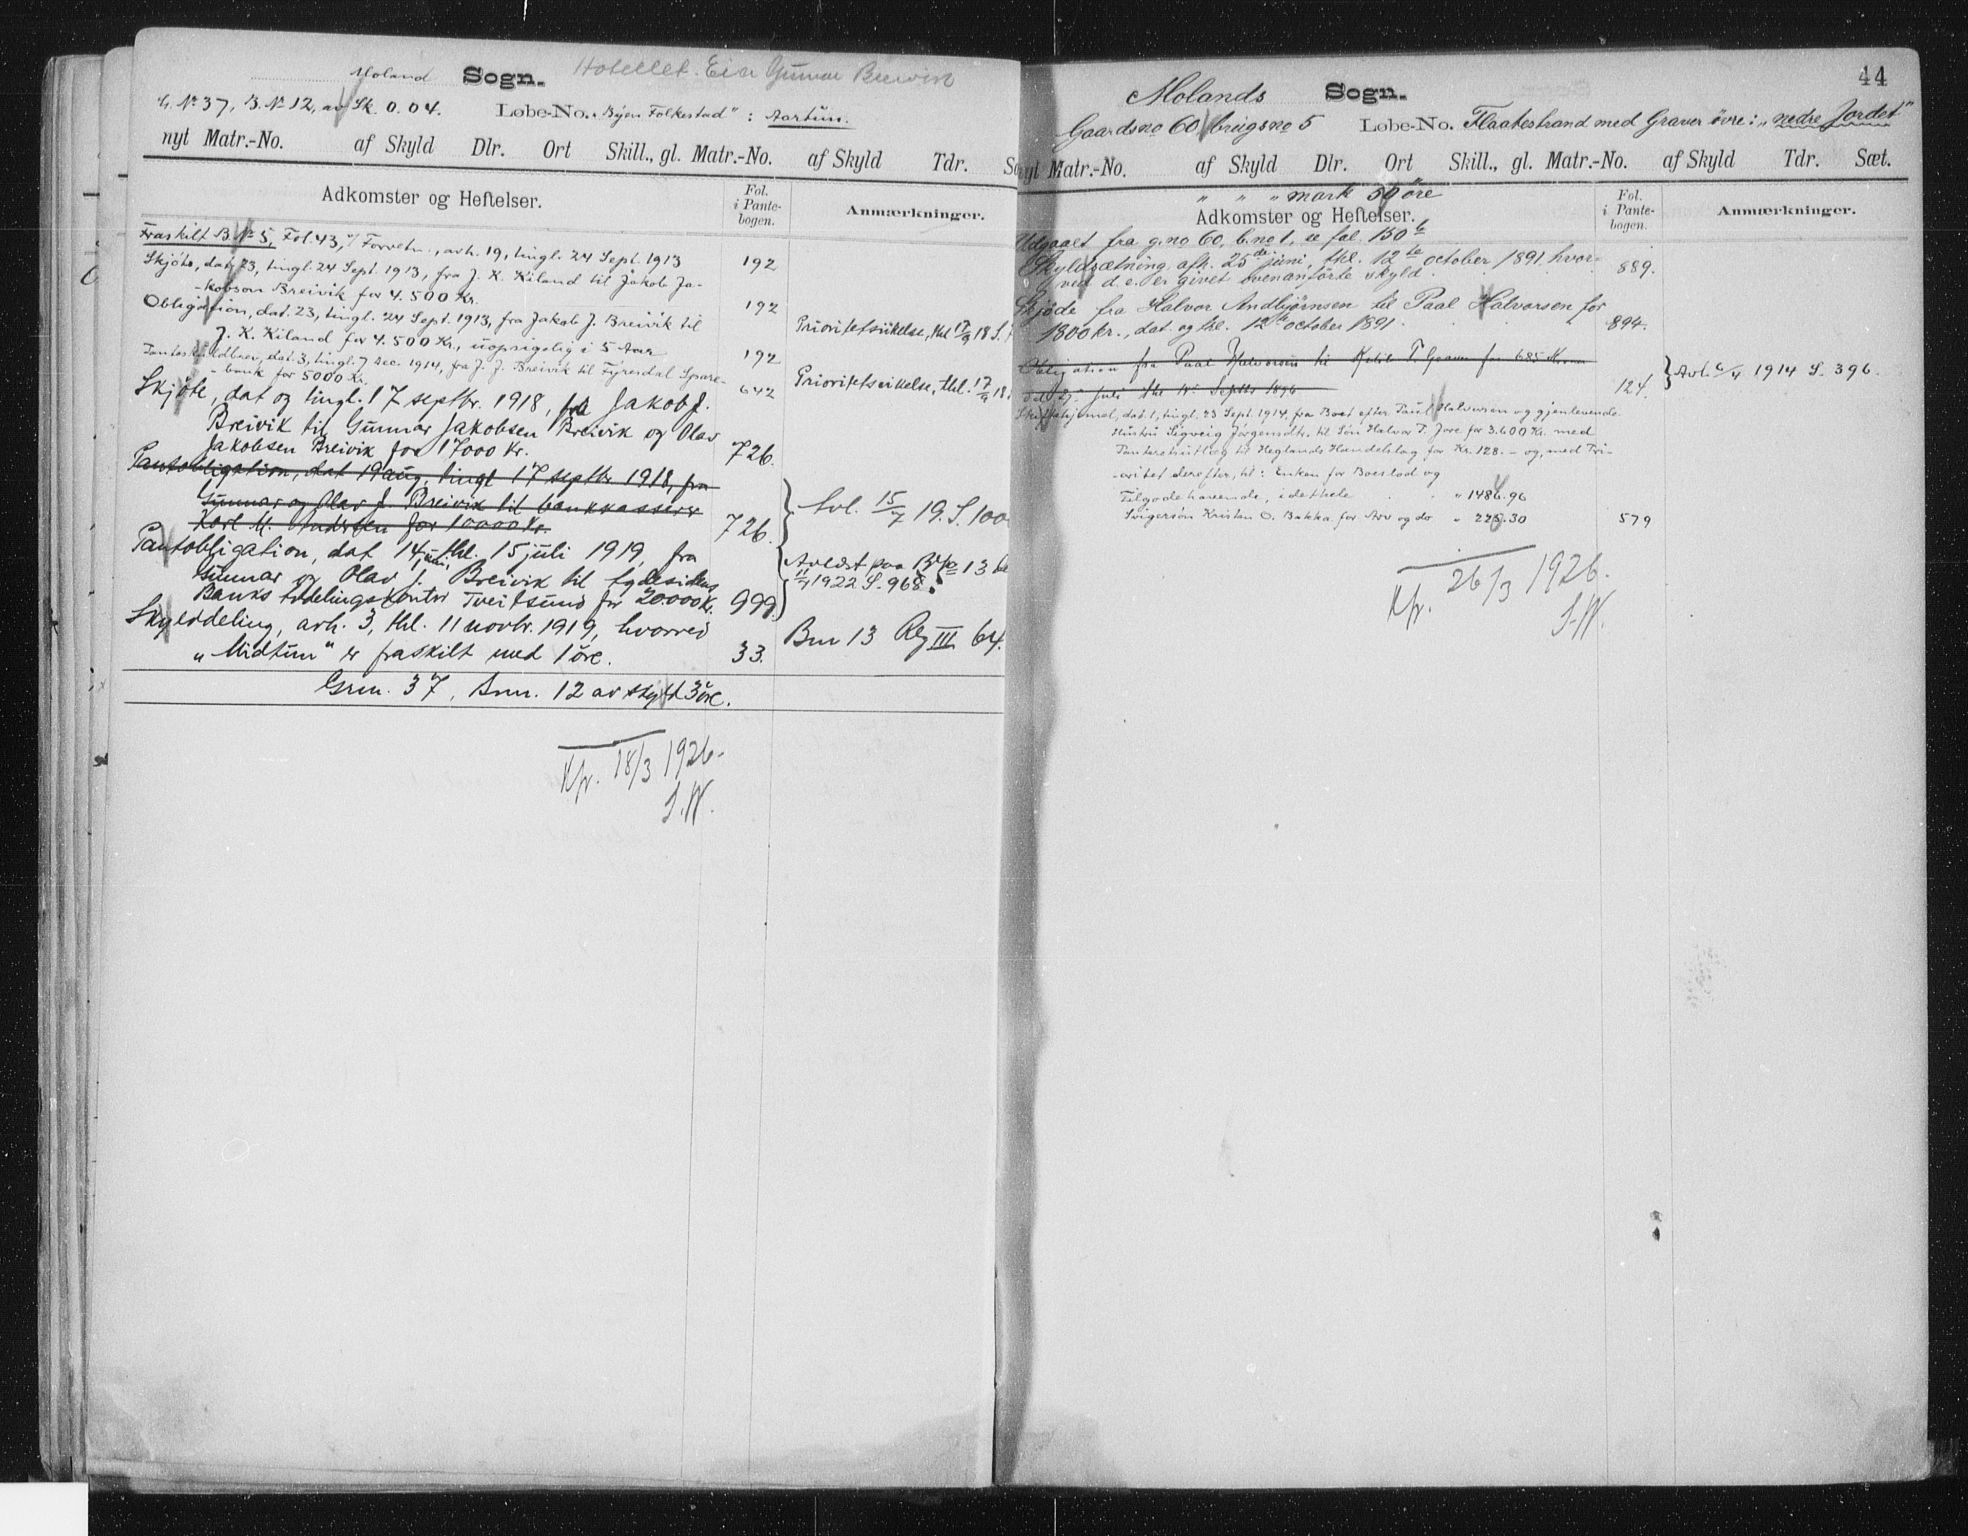 Moland Sogn. Hotellet. Eier Gunnar Breivik
G. No 37, B. No 12, av Sk. 0.04. Løbe-No. „Byen Folkestad": Aartun.
nyt Matr.-No. af Skyld Dlr. Ort Skill., gl. Matr.-No. af Skyld Tdr.
Adkomster og Heftelser. Fol. i Pante-bogen. Anmærkninger.
Fraskilt B No 5, Fol. 43, v/ Forretn., avh. 19, tingl. 24 Sept. 1913 192
Skjøte, dat. 23, tingl. 24 Sept. 1913, fra J. K. Kiland til Jakob Ja-
-kobson Breivik for 4.500 Kr. 192
Obligation, dat. 23, tingl. 24 Sept. 1913, fra Jakob J. Breivik til
J. K. Kiland for 4.500 Kr, uopsigelig i 5 Aar 192 Prioritetsvikelse, thl 17/9 18 S.
Panteskyldbrev, dat. 3, tingl. 7 Dec. 1914, fra J. J. Breivik til Fyresdal Spare-
-bank for 5000 Kr. 642 Prioritetsvikelse, thl. 17/9 18.
Skjøte, dat og tingl. 17 septbr. 1918, fra Jakob J.
Breivik til Gunnar Jakobsen Breivik og Olav
Jakobsen Breivik for 17000 Kr. 726.
Pantobligation, dat 19 aug, tingl 17 septbr. 1918, fra
Gunnar og Olav J. Breivik til bankkasserer
Karl M. Andersen for 10000 Kr. 726. Avl. 15/7 19. S. 100
Pantobligation, dat 14 juni, thl. 15 juli 1919, fra
Gunnar og Olav J. Breivik til Eydesidens
Banks Avdelingskontor Tveitsund for 20.000 Kr. 999. Avløst paa B No 13
11/7 1922 S. 968.
Skylddeling, avh. 3, thl. 11 novbr. 1919, hvorved
„Midtun" er fraskilt med 1 øre. 33. Bnr 13 Reg III 64.
Grnr. 37, Bnr. 12 av skyld 3 øre.
Kfr. 18/3 1926.
S.W.
44
Molands Sogn.
Gaardsno 60 brugsno 5 Løbe-No. Flaatestrand med Graver øvre: „nedre Jordet"
nyt Matr.-No. af Skyld Dlr. Ort Skill., gl. Matr.-No. af Skyld Tdr. Sæt.
" " " mark 50 øre
Adkomster og Heftelser. Fol. i Pante-bogen. Anmærkninger.
Udgaaet fra g.no 60, b.no 1, se fol. 150 b
Skyldsætning, afh. 25de juni, thl. 12te october 1891 hvor-
ved d. e. er givet ovenanførte skyld. 889.
Skjøde fra Halvor Andbjørnsen til Paal Halvorsen for
1800 kr., dat. og thl. 12te october 1891. 894.
Obligation fra Paal Halvorsen til Ketil T. Graver for 685 Kroner
dat 27. juli thl Septbr 1896 124. Avl. 6/4 1914 S. 396.
Skiftehjemel, dat. 1, tingl. 23 Sept. 1914, fra Boet efter Paul Halvorsen og gjenlevende
Hustru Sigveig Jørgensdtr. til Søn Halvor P. Jore for 3.600 Kr. med
Panterhutleg til Heglands Handelslag for Kr. 128. – og, med Pri-
-oritet derefter, til: Enken for Boeslod og
Tilgodehavende, i det hele " " 1486.96
Svigersøn Kristen O. Bakka for Arv og do " 225.30 579
Kfr. 26/3 1926.
S.W.